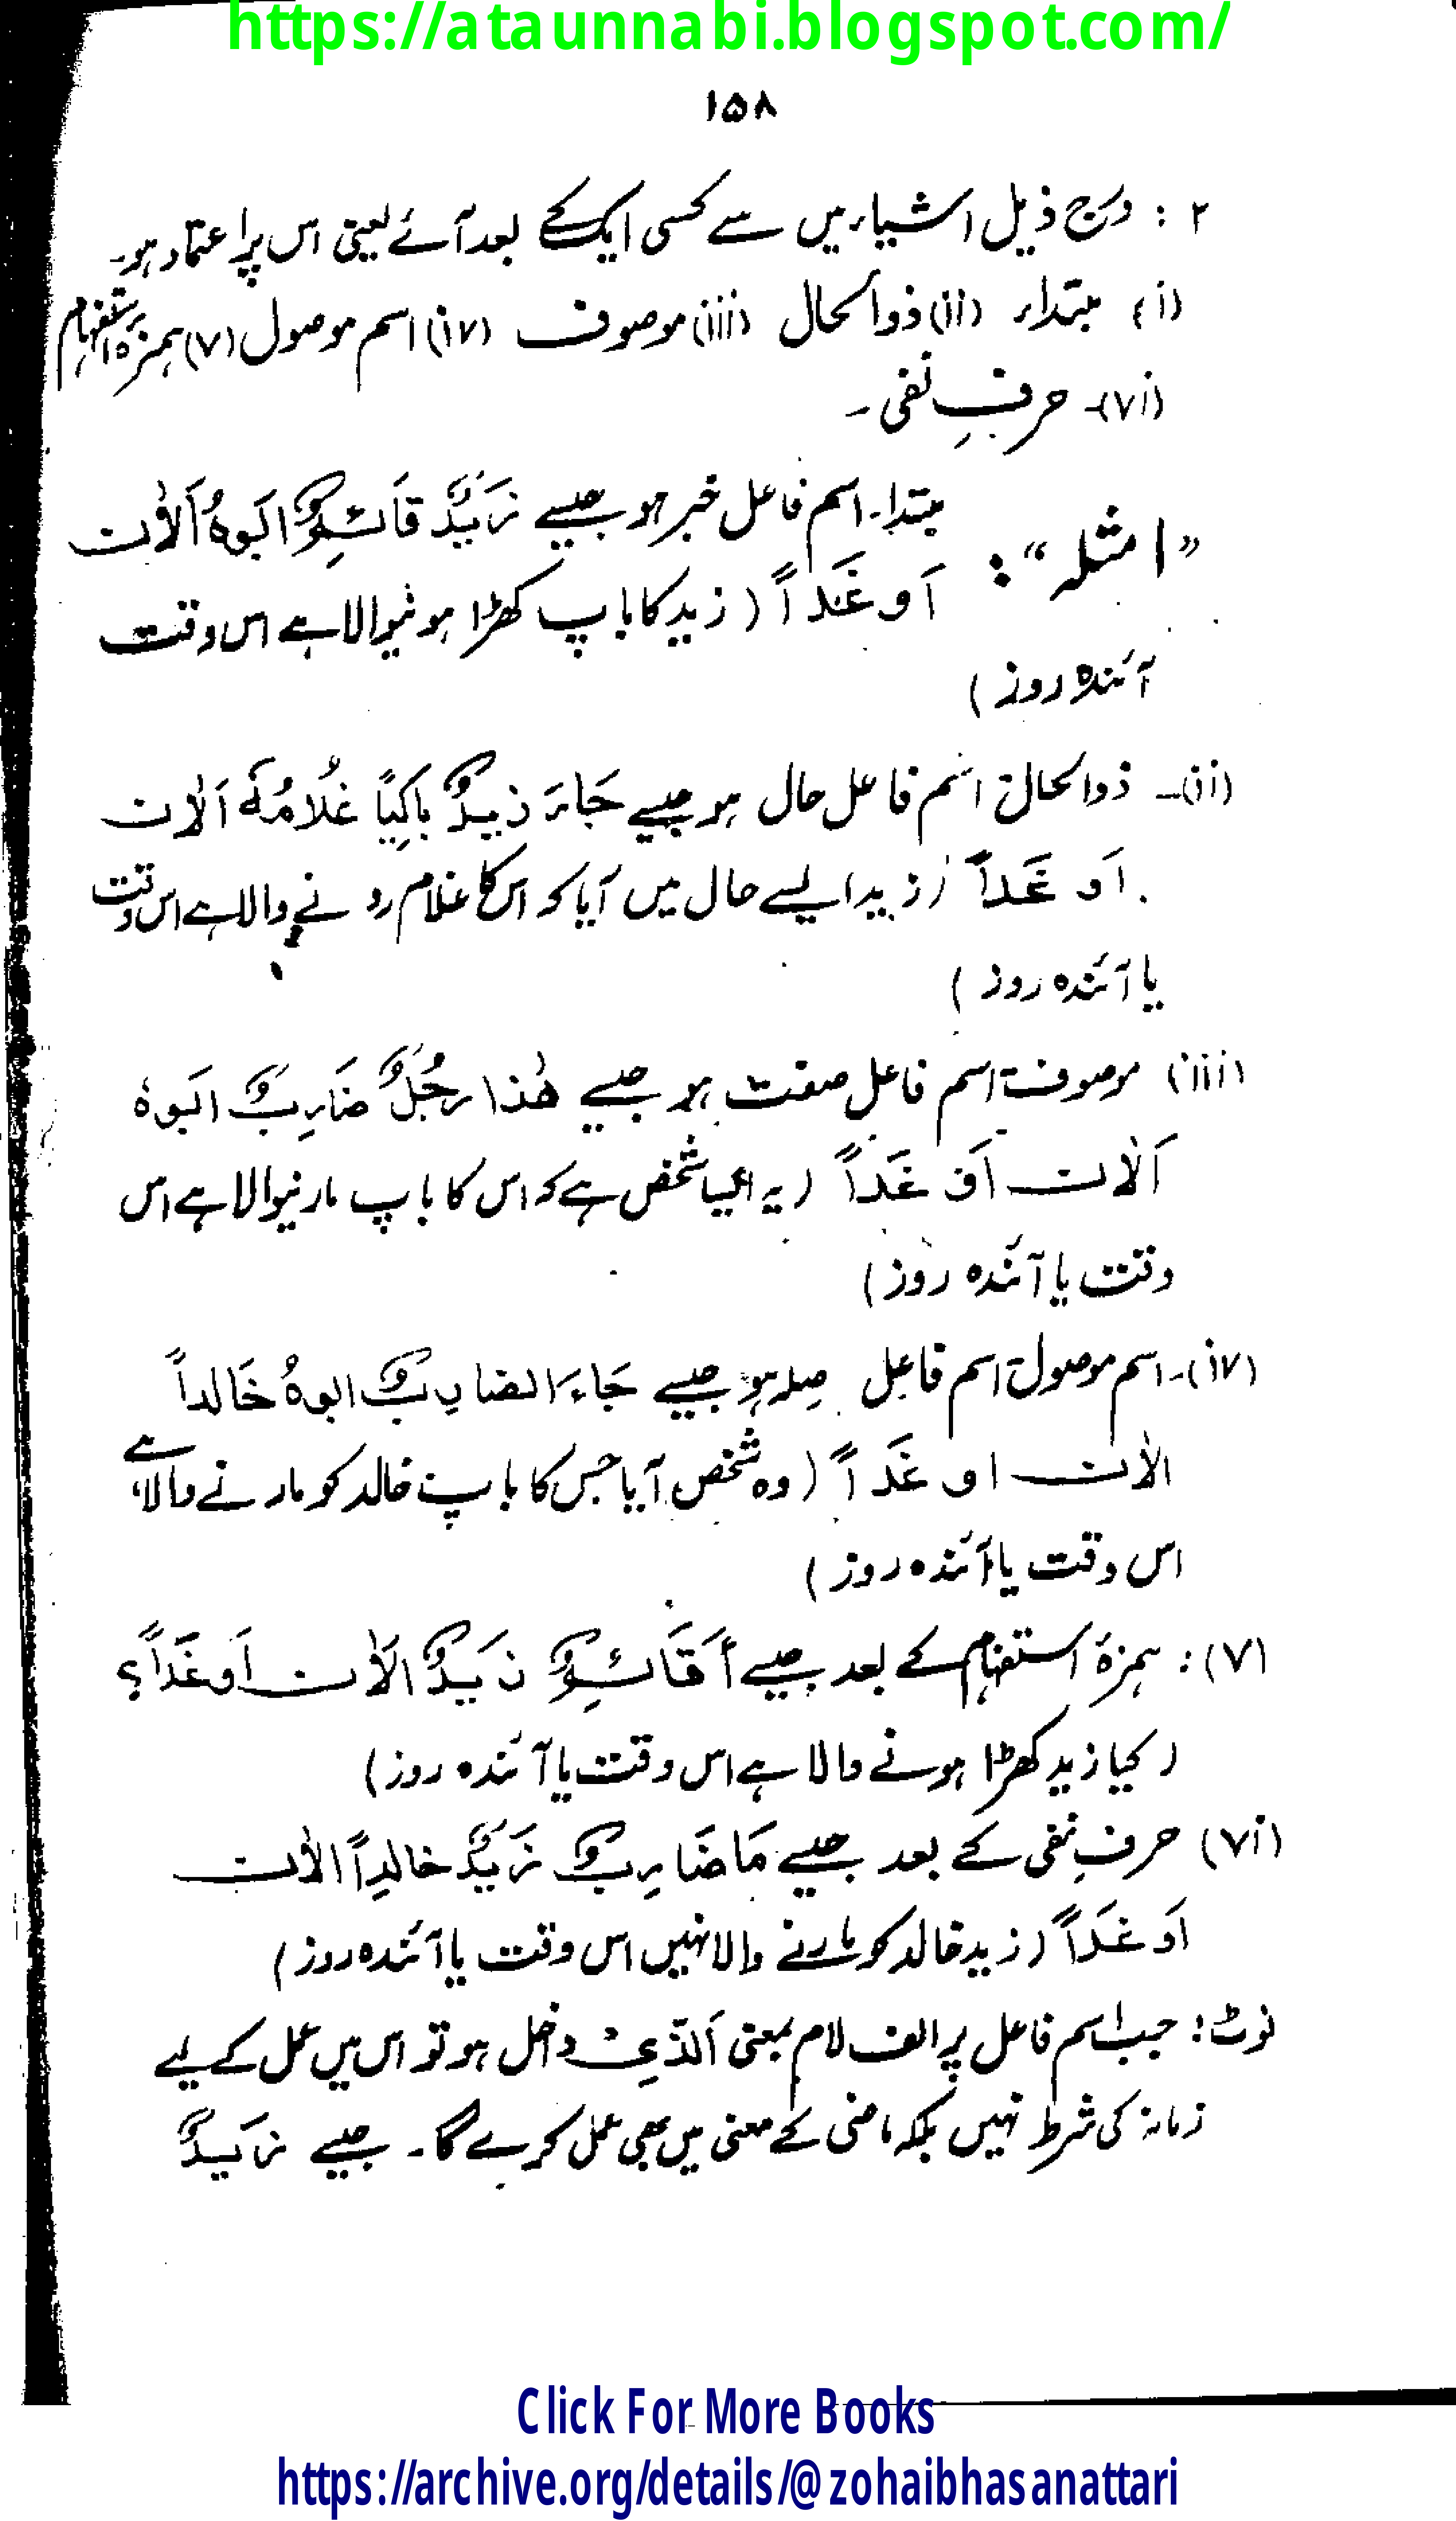 https://ataunnabi.blogspot.com/
۱۵۸
۲ : درج ذیل اشیاء میں سے کسی ایک کے بعد آئے یعنی اس پر اعتماد ہو۔
(i) مبتداء (ii) ذوالحال (iii) موصوف (iv) اسم موصول (v) ہمزہ استفہام
(vi)۔ حرفِ نفی ۔
"امثلہ" : مبتداء۔ اسم فاعل خبر ہو جیسے زَیْدٌ قَائِمٌ اَبُوہُ اَلْاٰنَ
اَو غَداً (زید کا باپ کھڑا ہونیوالا ہے اس وقت
آئندہ روز)
(ii)۔ ذوالحال، اسم فاعل حال ہو جیسے جَاءَ زَیدٌ بَاکِیًا غُلَامُہٗ اَلْاٰنَ
اَو غَداً (زید ایسے حال میں آیا کہ اس کا غلام رونے والا ہے اس وقت
یا آئندہ روز)
(iii) موصوف، اسم فاعل صفت ہو جیسے ھٰذَا رَجُلٌ ضَارِبٌ اَبُوہُ
اَلْاٰنَ اَوْ غَداً (یہ ایسا شخص ہے کہ اس کا باپ مارنیوالا ہے اس
وقت یا آئندہ روز)
(iv)۔ اسم موصول، اسم فاعل صلہ ہو جیسے جَاءَ الضَارِبُ ابوہُ خَالداً
الْاٰنَ او غَداً (وہ شخص آیا جس کا باپ خالد کو مارنے والا ہے
اس وقت یا آئندہ روز)
(v) : ہمزۂ استفہام کے بعد جیسے أَقَائِمٌ زَیدٌ الْاٰنَ اَو غَداً؟
(کیا زید کھڑا ہونے والا ہے اس وقت یا آئندہ روز)
(vi) حرفِ نفی کے بعد جیسے مَا ضَارِبٌ زَیْدٌ خالِداً الْاٰنَ
اَو غَداً (زید خالد کو مارنے والا نہیں اس وقت یا آئندہ روز)
نوٹ : جب اسم فاعل پر الف لام بمعنی اَلَّذِی داخل ہو تو اس میں عمل کے لیے
زمانہ کی شرط نہیں بلکہ ماضی کے معنی میں بھی عمل کرے گا۔ جیسے زَیدٌ
Click For More Books
https://archive.org/details/@zohaibhasanattari